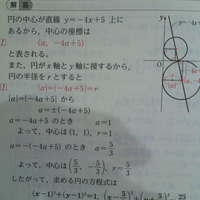 解答
円の中心が直線 y=-4x+5 上に
あるから、中心の座標は
(a, -4a+5)
と表される。
また、円がx軸とy軸に接するから、
円の半径をrとすると
|a|=|-4a+5|=r
|a|=|-4a+5| から
a=±(-4a+5)
a=-4a+5 のとき a=1
よって、中心は(1, 1), r=1
a=-(-4a+5) のとき a=5/3
よって、中心は(5/3, -5/3), r=5/3
したがって、求める円の方程式は
(x-1)²+(y-1)²=1,
y